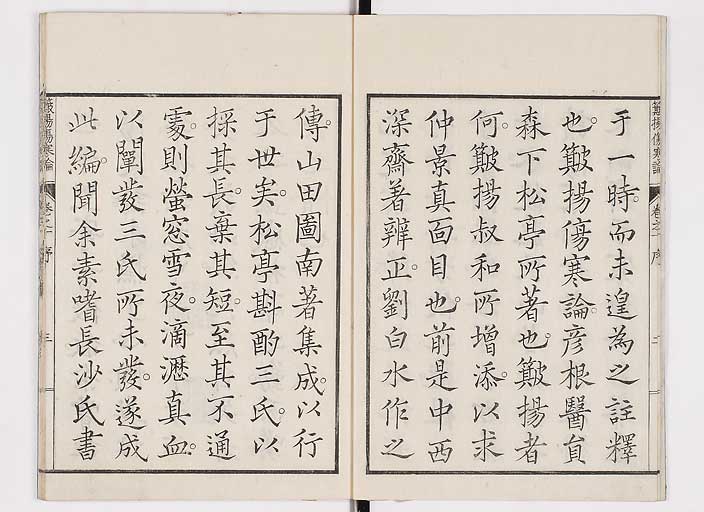 簸揚傷寒論 卷之一 序 二
于一時。而未遑為之註釋
也。簸揚傷寒論。彦根醫員
森下松亭所著也。簸揚者
何。簸揚叔和所增添。以求
仲景真面目也。前是中西
深齋著辨正。劉白水作之
傳。山田圖南著集成。以行
于世矣。松亭斟酌三氏。以
採其長。棄其短。至其不通
處。則螢窓雪夜。滴瀝真血。
以闡發三氏所未發。遂成
此編。聞余素嗜長沙氏書
簸揚傷寒論 卷之一 序 三